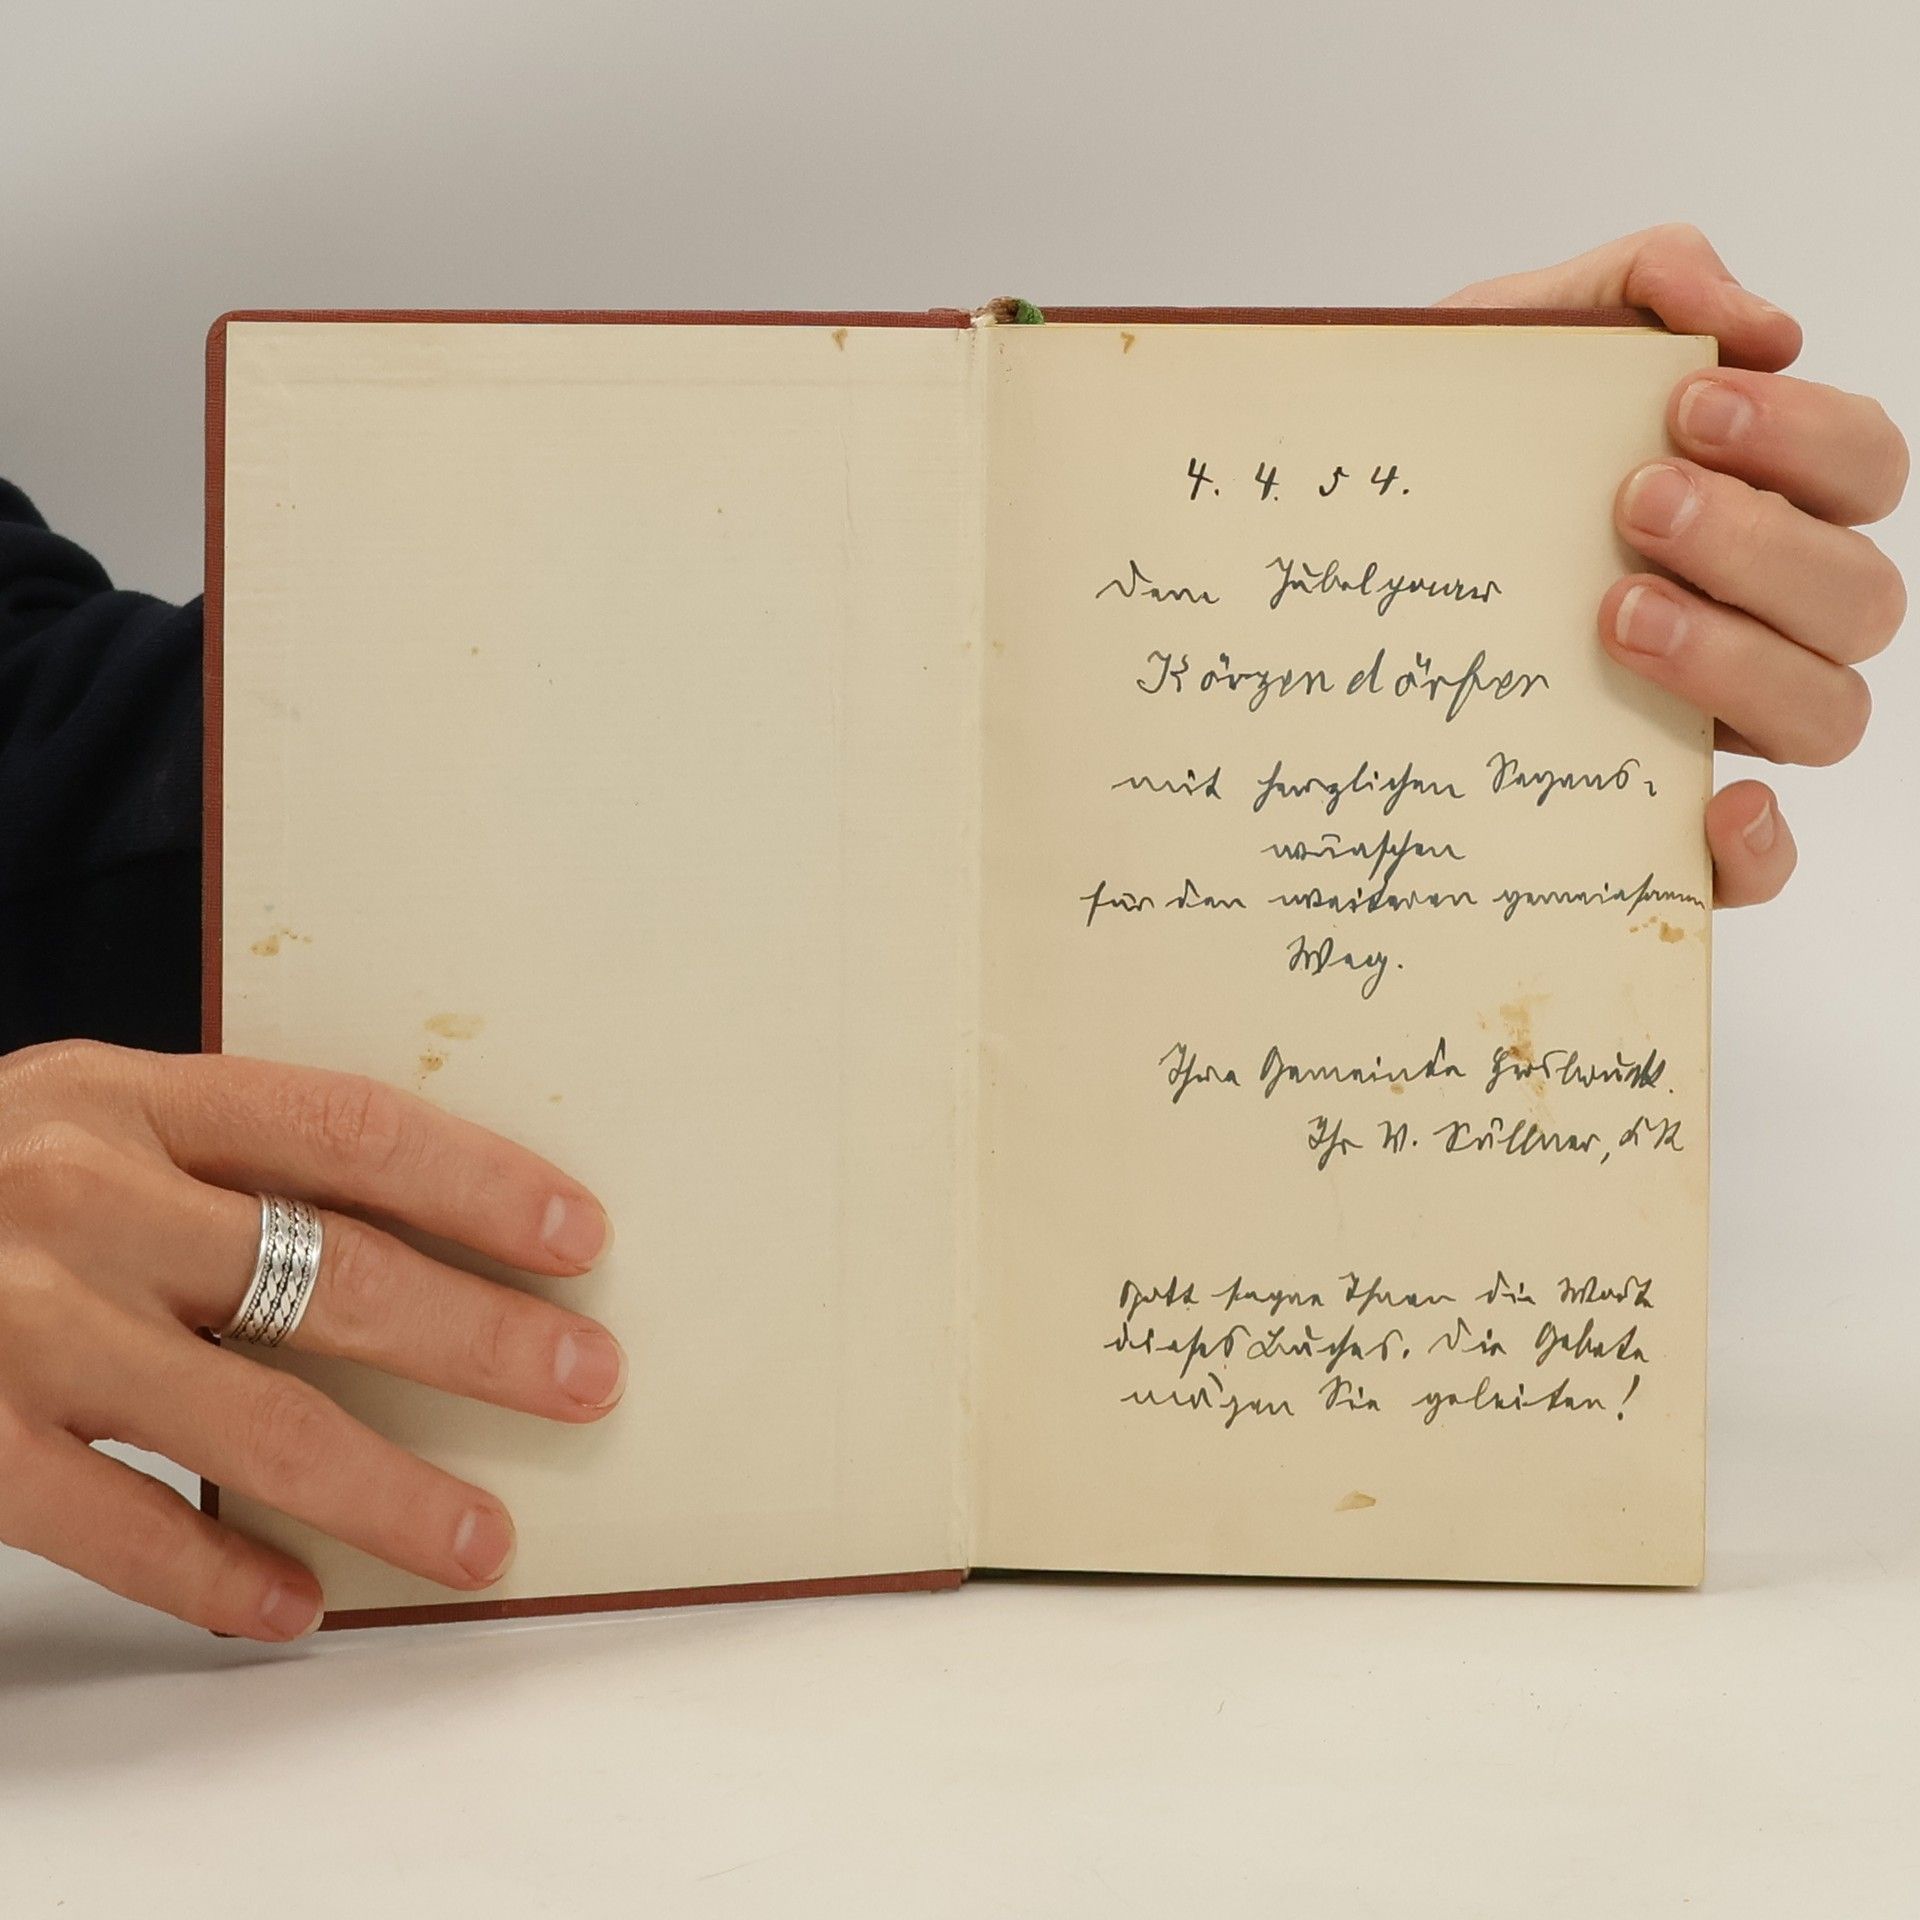 4. 4. 54.
Dem Jubelpaar
Körzendörfer
mit herzlichen Segens-
wünschen
für den weiteren gemeinsamen
Weg.
Ihre Gemeinde Hersbruck.
Ihr W. Süllner, KR
Gott segne Ihnen die Worte
dieses Buches. Die Gebete
mögen Sie geleiten!